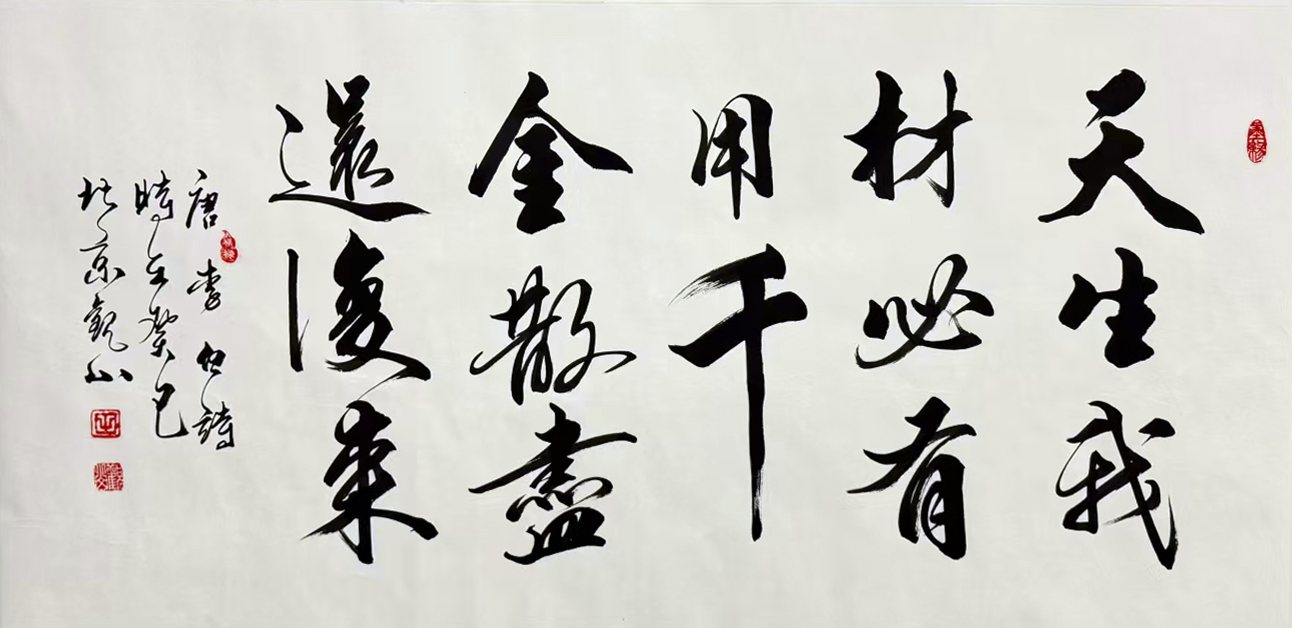 天生我
材必有
用千
金散盡
還復來
唐李白詩
時在癸巳
於京觀山